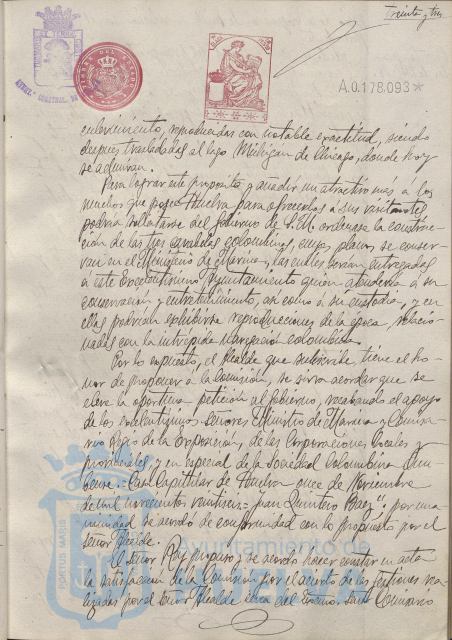 treinta y tres
A.0.178.093*
reproducidas con notable exactitud, siendo
despues trasladadas al lago Michigan de Chicago, donde hoy
se admiran.
Para lograr este proposito y añadir un atractivo más a los
muchos que posee Huelva para ofrecerlos á sus visitantes,
podria solicitarse del Gobierno de S. M. ordenase la construc-
ción de las tres carabelas colombinas, cuyos planos se conser-
van en el Ministerio de Marina, las cuales serian entregadas
á este Excelentísimo Ayuntamiento quien atenderia á su
conservación y entretenimiento, asi como á su custodia, y en
ellas podrian exhibirse reproducciones de la época, relacio-
nadas con la intrépida navegación colombina.
Por lo expuesto, el Alcalde que suscribe, tiene el ho-
nor de proponer á la Comisión, se sirva acordar que se
eleve la oportuna petición al Gobierno, recabando el apoyo
de los excelentísimos señores Ministro de Marina y Comisa-
rio Regio de la Exposición, de las Corporaciones locales y
provinciales y en especial de la Sociedad Colombina Onu-
bense.= Casa Capitular de Huelva once de Noviembre
de mil novecientos veintiseis= Juan Quintero Baez": por una-
nimidad se acordó de conformidad con lo propuesto por el
señor Alcalde.
El señor propuso y se acordó hacer constar en acta
la satisfacción de la Comisión por el acierto de las gestiones rea-
lizadas por el señor Alcalde cerca del Excmo. señor Comisario
Ayuntamiento de
HUELVA
PORTUS MARIS